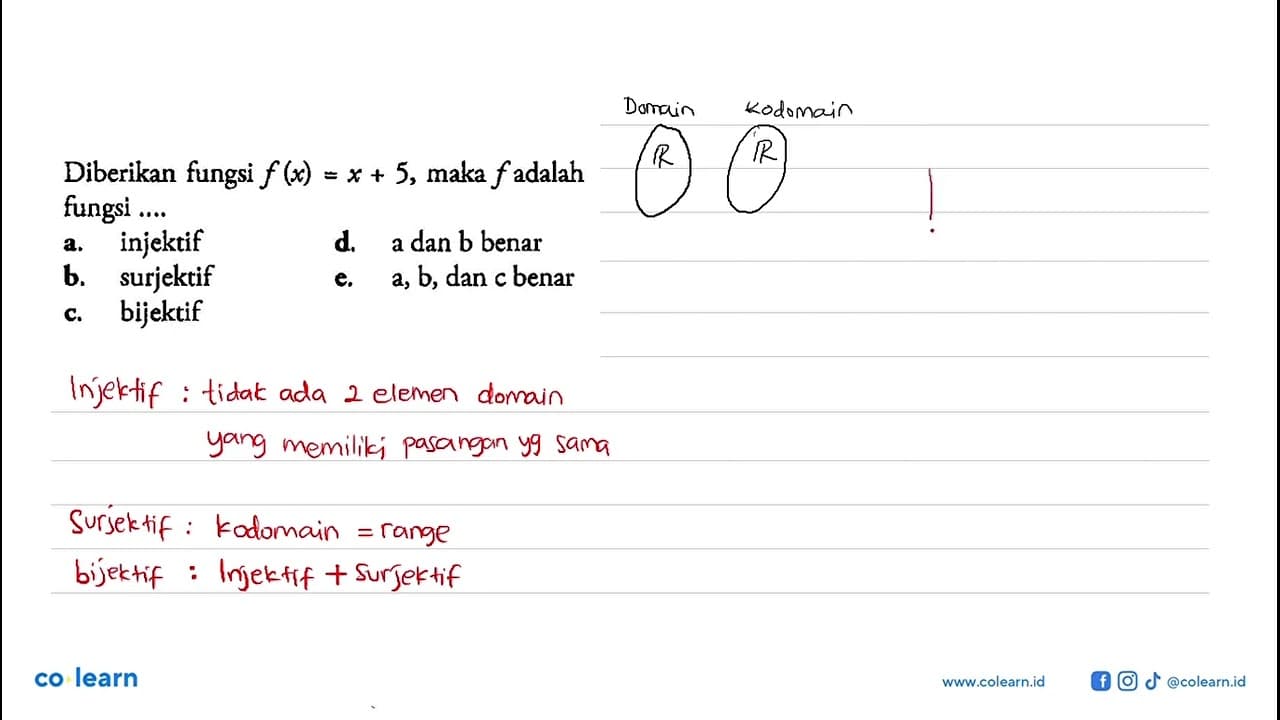 Domain Kodomain
R R
Diberikan fungsi f (x) = x + 5, maka f adalah
fungsi ....
a. injektif d. a dan b benar
b. surjektif e. a, b, dan c benar
c. bijektif
Injektif : tidak ada 2 elemen domain
yang memiliki pasangan yg sama
Surjektif : kodomain = range
bijektif : Injektif + Surjektif
co learn
www.colearn.id @colearn.id